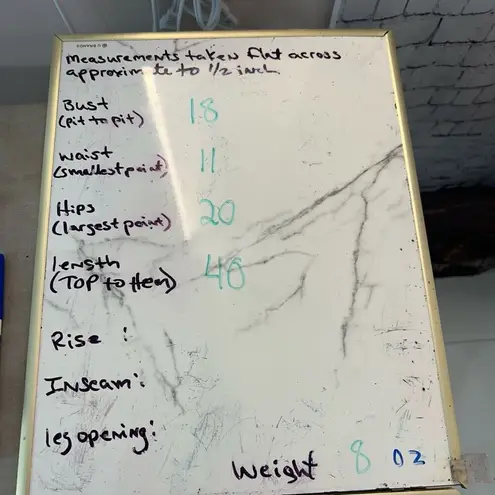 U BRANDS
Measurements taken flat across
approximate to 1/2 inch
Bust 18
(pit to pit)
Waist 11
(smallest point)
Hips 20
(largest point)
Length 40
(TOP to Hem)
Rise :
Inseam :
leg opening :
Weight 8 oz